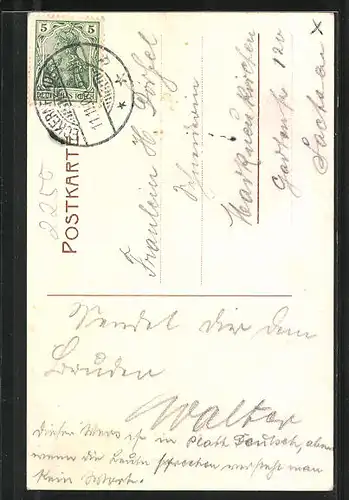 5 5
ECKERNFÖRDE
11.11.
2250
POSTKARTE
Fräulein H. Dörfel
Schneiderin
Markneukirchen
Gartenstr 120
Sachsen
X
Sendet dir dein
Bruder
Walter
Dieser Vers ist in Platt Deutsch, aber
wenn die Leute sprechen versteht man
kein Wort.